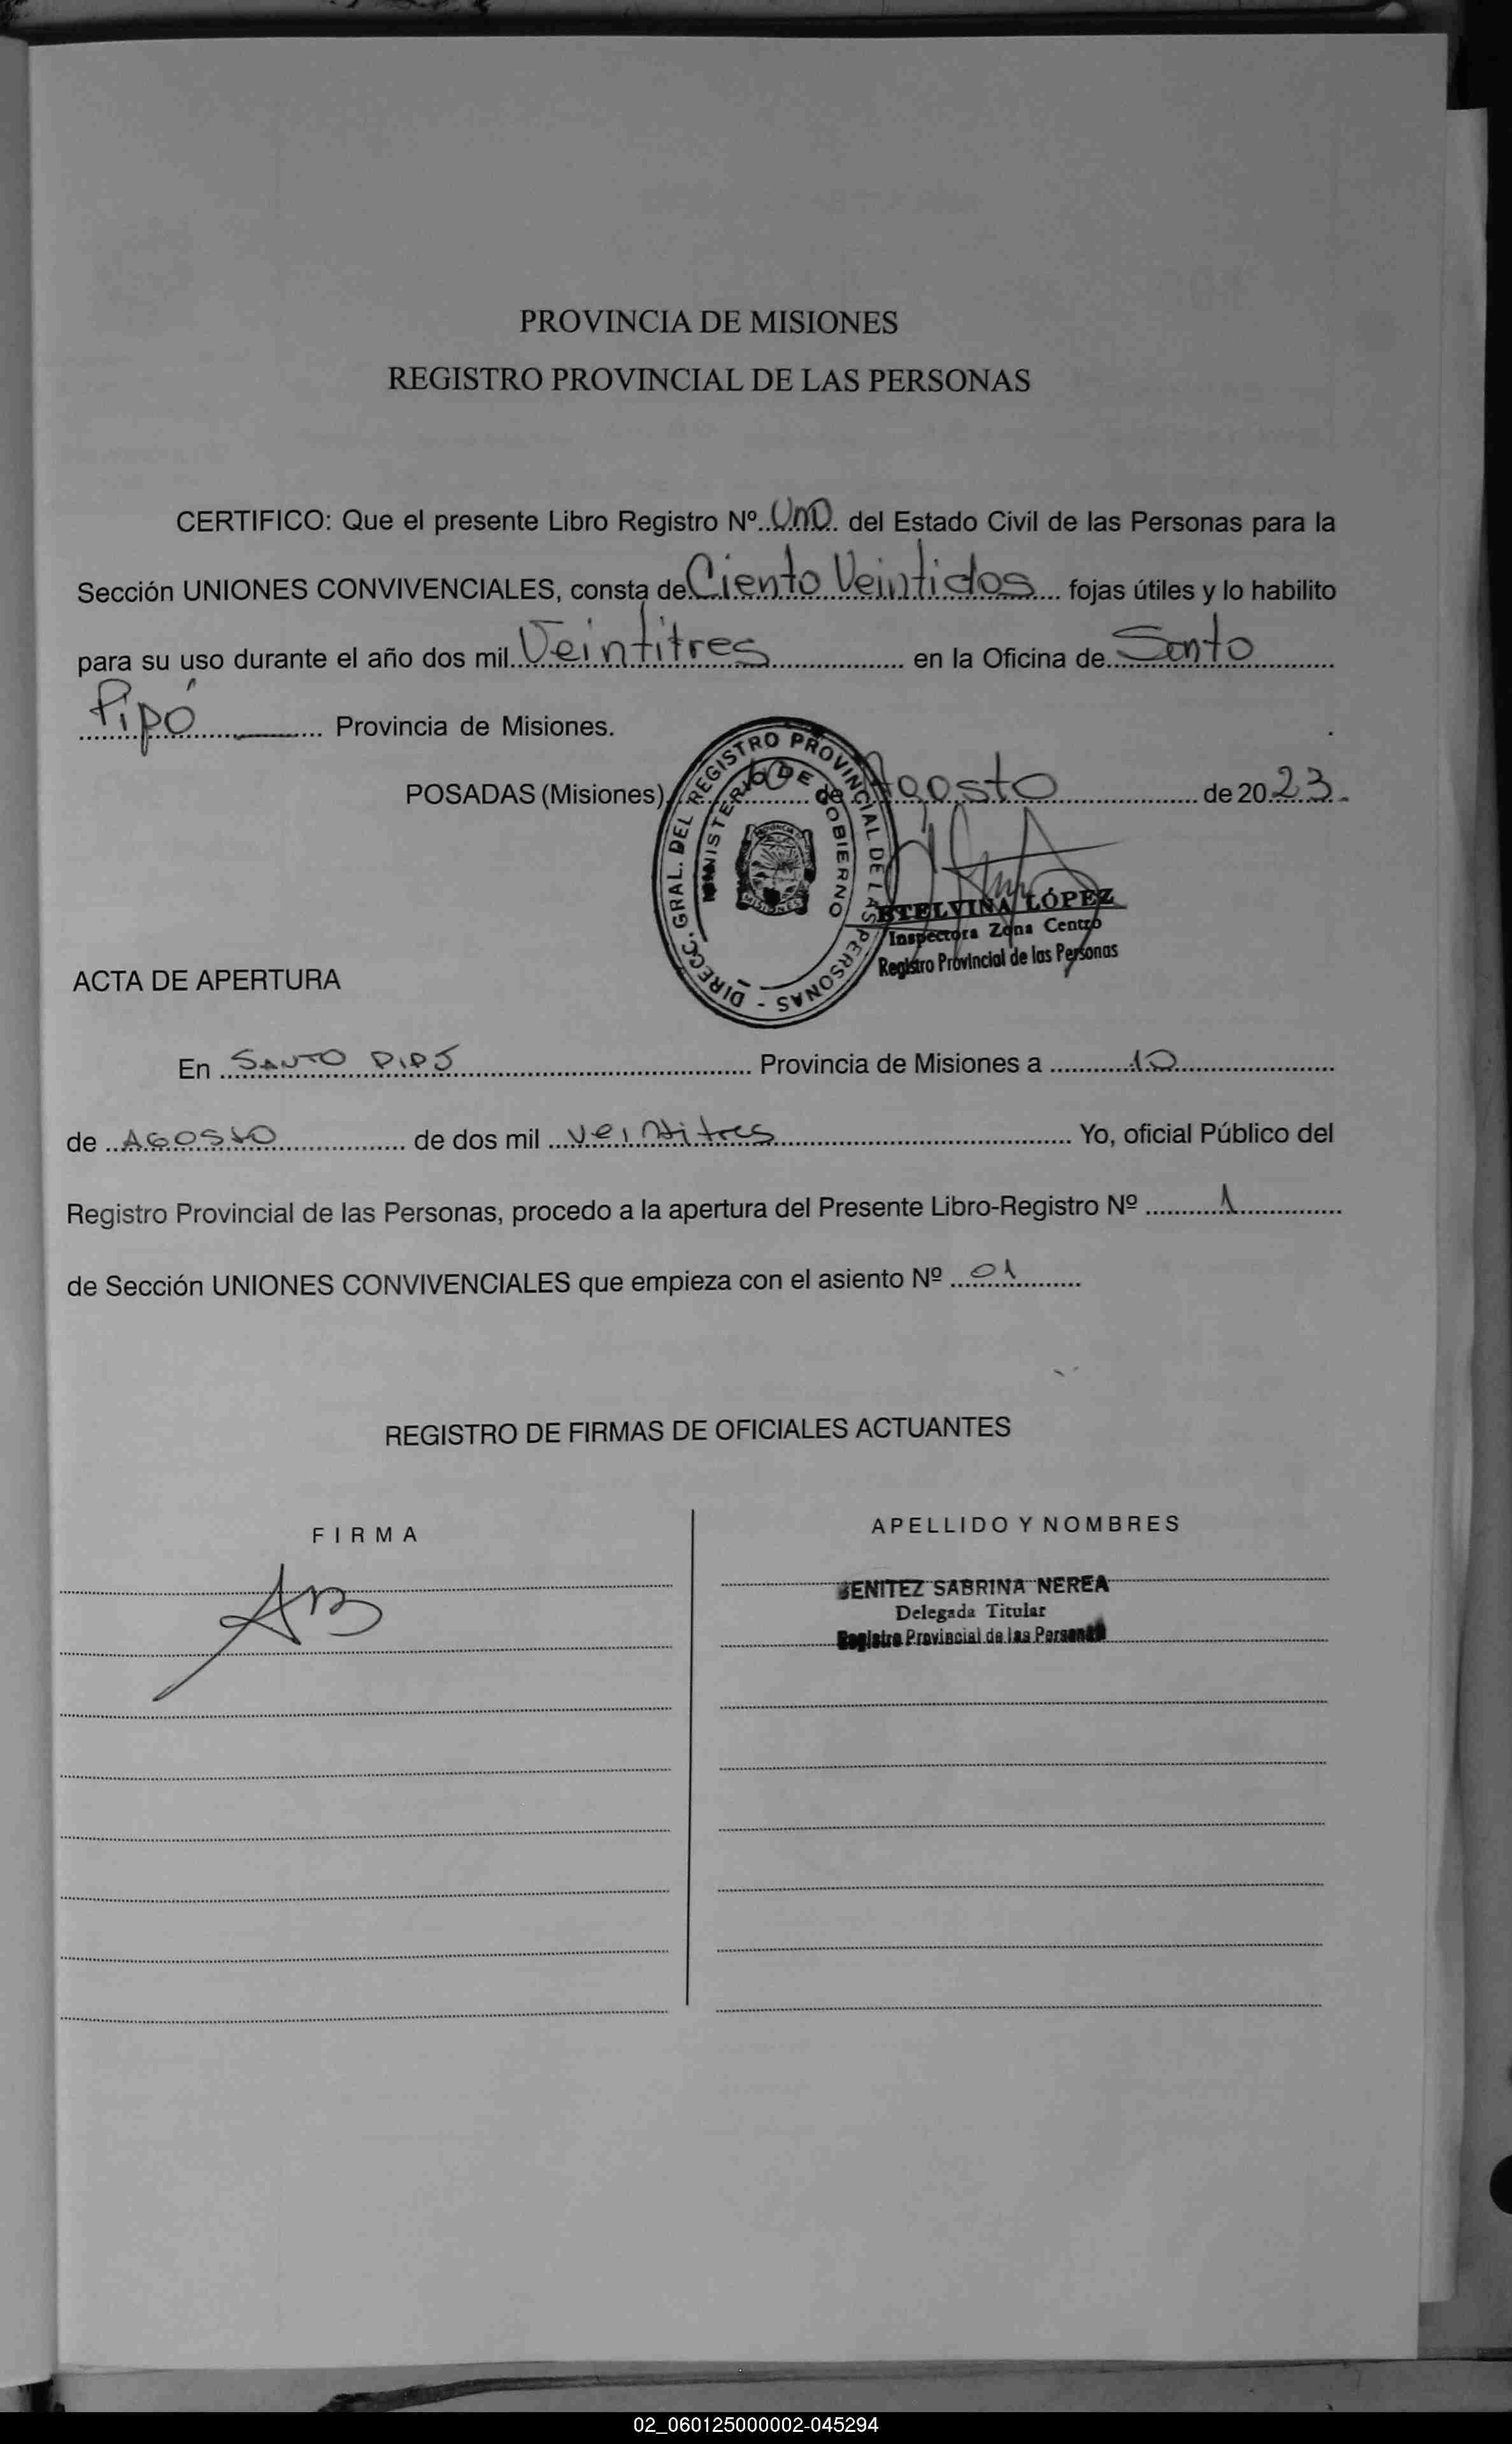 PROVINCIA DE MISIONES
REGISTRO PROVINCIAL DE LAS PERSONAS
CERTIFICO: Que el presente Libro Registro Nº..Uno.. del Estado Civil de las Personas para la
Sección UNIONES CONVIVENCIALES, consta de Ciento Veintidos.... fojas útiles y lo habilito
para su uso durante el año dos mil..Veintitres.................. en la Oficina de....Santo..........
Pipó.............. Provincia de Misiones.
POSADAS (Misiones), 10 de Agosto.................. de 2023.-
DIRECC. GRAL. DEL REGISTRO PROVINCIAL DE LAS PERSONAS -
MINISTERIO DE GOBIERNO
MISIONES
ETELVINA LÓPEZ
Inspectora Zona Centro
Registro Provincial de las Personas
ACTA DE APERTURA
En ..SANTO PIPÓ.................................... Provincia de Misiones a ...........10......................
de ..AGOSTO................. de dos mil ...veintitres........................................ Yo, oficial Público del
Registro Provincial de las Personas, procedo a la apertura del Presente Libro-Registro Nº ..........1..............
de Sección UNIONES CONVIVENCIALES que empieza con el asiento Nº ....01.........
REGISTRO DE FIRMAS DE OFICIALES ACTUANTES
FIRMA
APELLIDO Y NOMBRES
BENITEZ SABRINA NEREA
Delegada Titular
Registro Provincial de las Personas
02_060125000002-045294